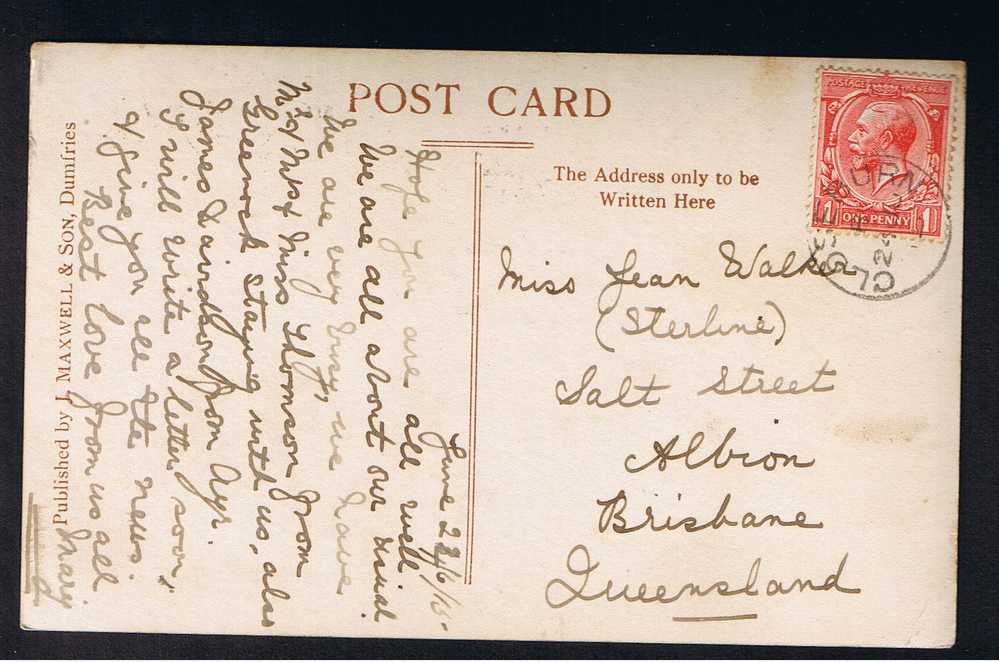 POST CARD
The Address only to be
Written Here
POSTAGE REVENUE
1 ONE PENNY 1
Miss Jean Walker
(Sterline)
Salt Street
Albion
Brisbane
Queensland
June 22/6/15.
Hope you are all well
We are all about our usual.
We are very busy, we have
Mr & Mrs & Miss Thomson from
Greenock staying with us, also
James Davidson from Ayr.
I will write a letter soon,
& give you all the news.
Best love from us all
Mary
Published by J. MAXWELL & SON, Dumfries